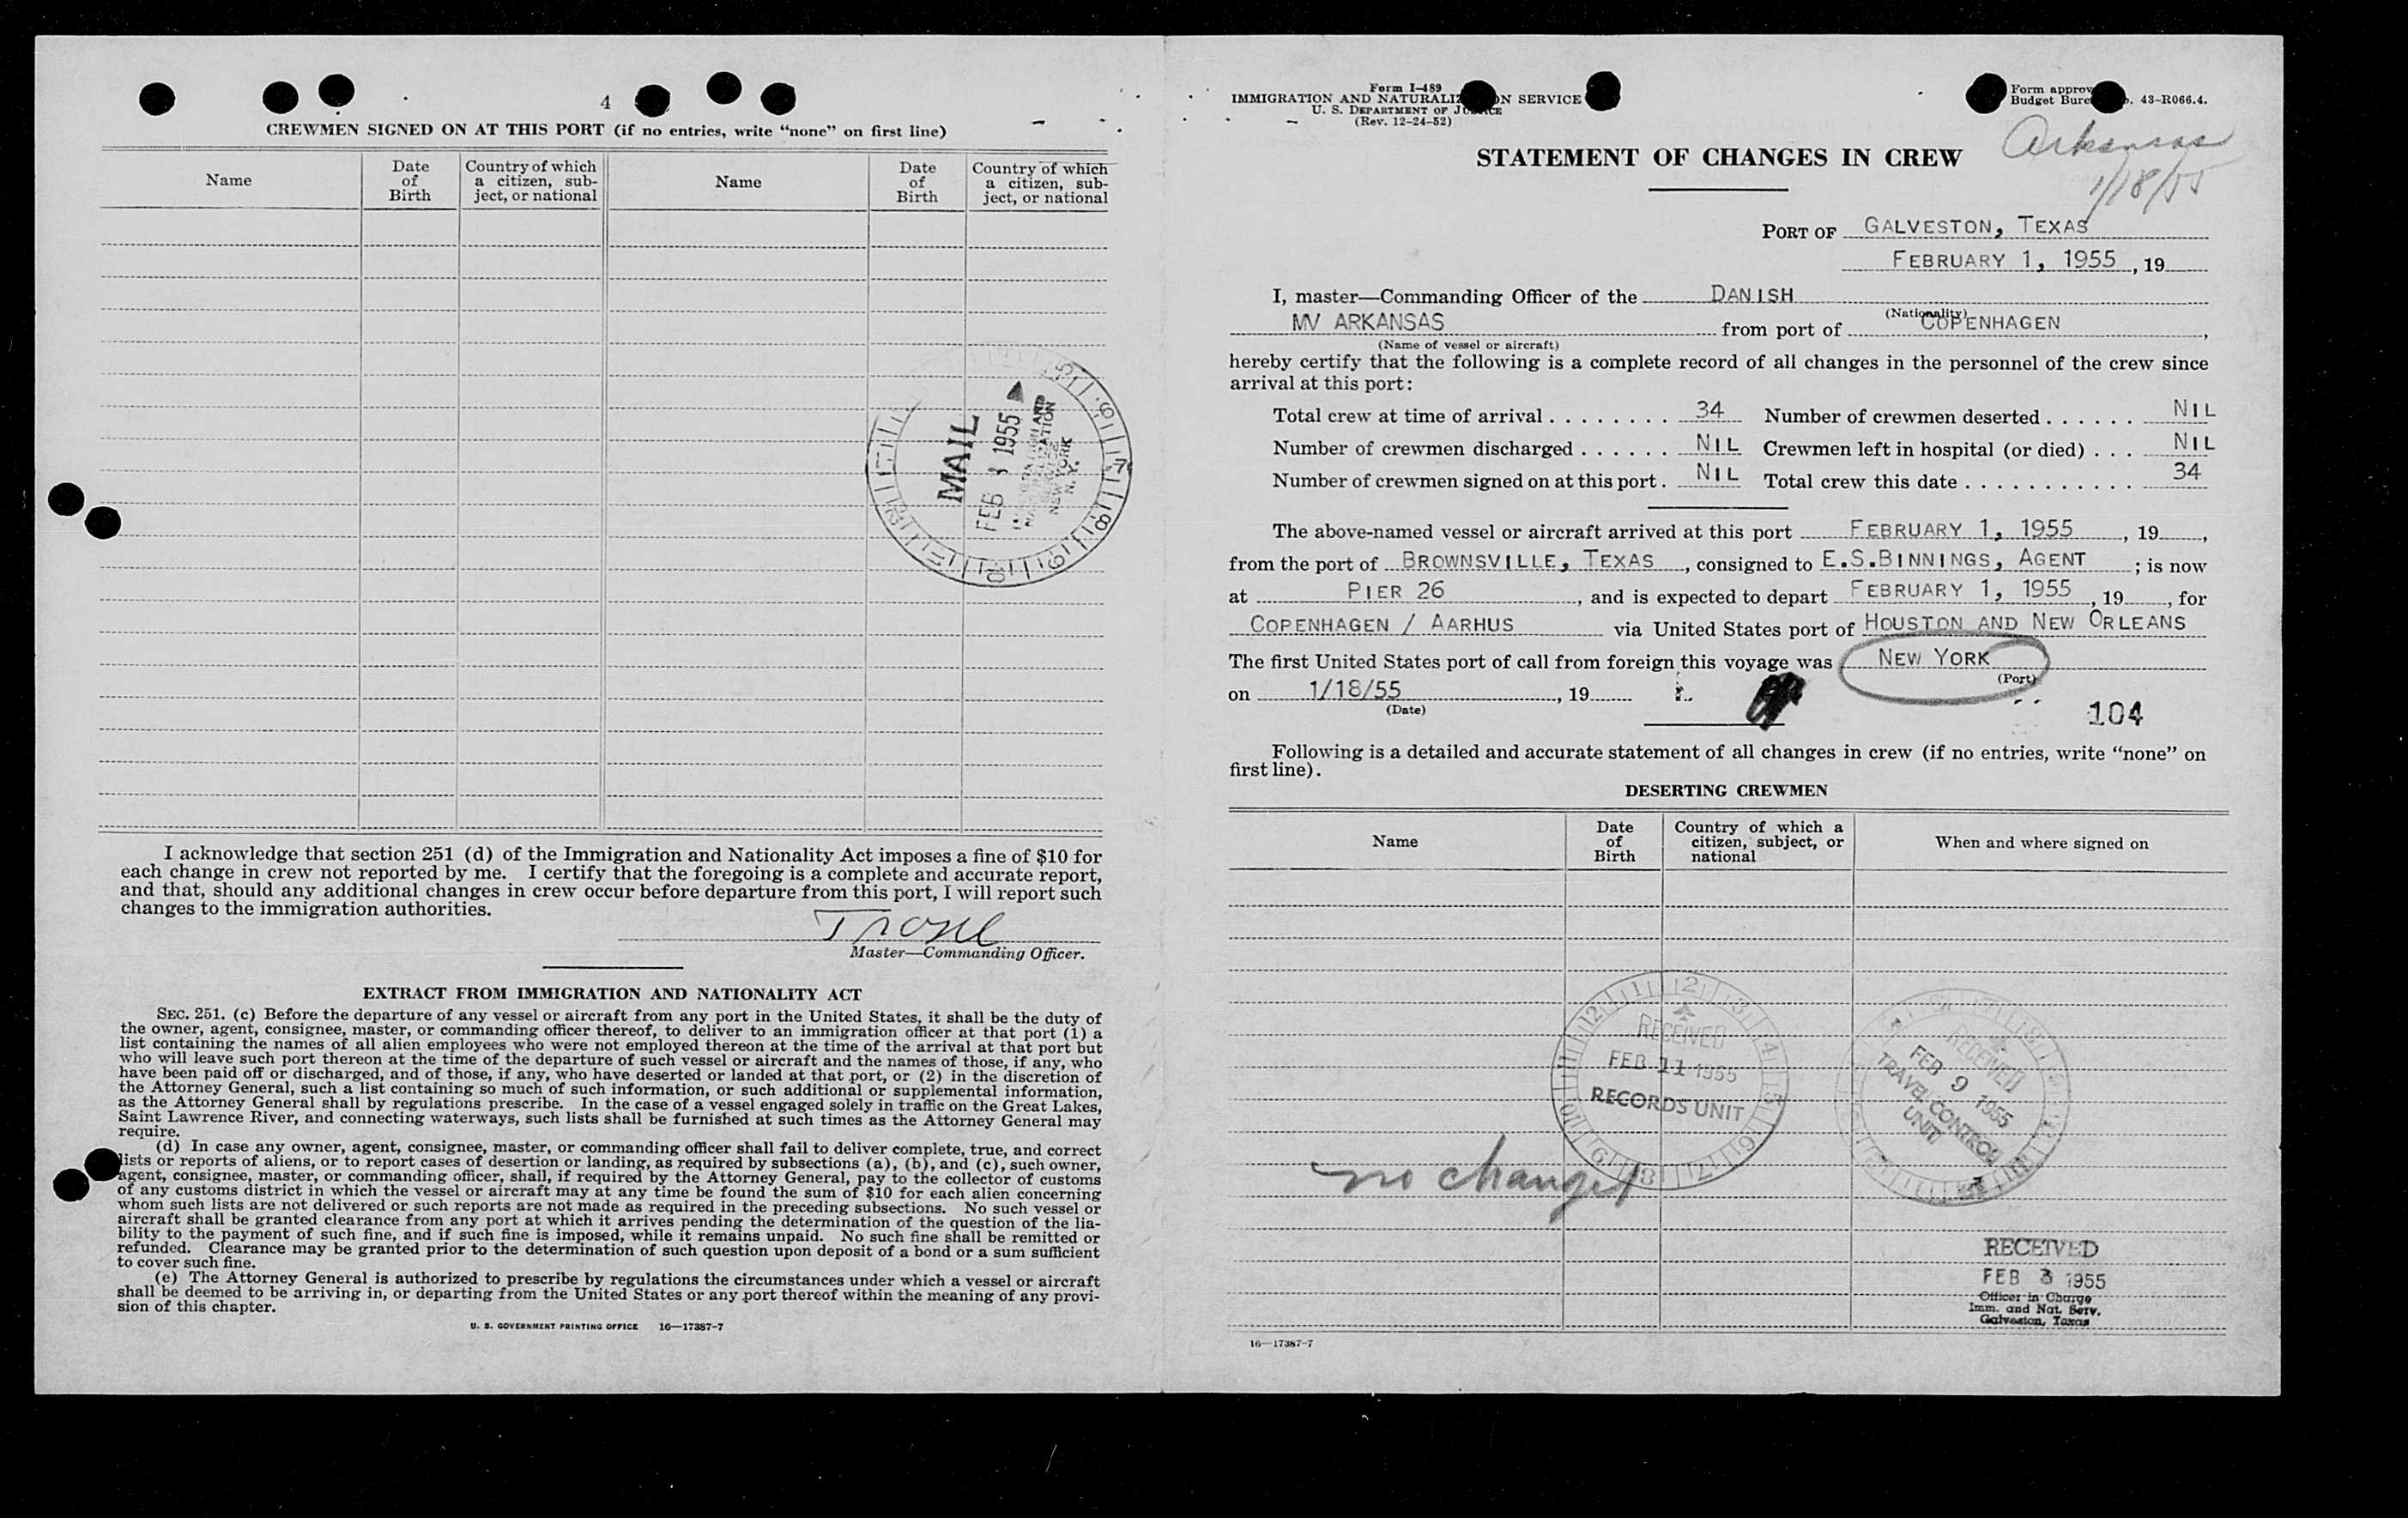 4
CREWMEN SIGNED ON AT THIS PORT (if no entries, write “none” on first line)
Name
Date of Birth
Country of which a citizen, sub-
ject, or national
Name
Date of Birth
Country of which a citizen, sub-
ject, or national
MAIL
FEB 1955
NEW YORK
N. Y.
I acknowledge that section 251 (d) of the Immigration and Nationality Act imposes a fine of $10 for
each change in crew not reported by me. I certify that the foregoing is a complete and accurate report,
and that, should any additional changes in crew occur before departure from this port, I will report such
changes to the immigration authorities.
Master—Commanding Officer.
EXTRACT FROM IMMIGRATION AND NATIONALITY ACT
SEC. 251. (c) Before the departure of any vessel or aircraft from any port in the United States, it shall be the duty of
the owner, agent, consignee, master, or commanding officer thereof, to deliver to an immigration officer at that port (1) a
list containing the names of all alien employees who were not employed thereon at the time of the arrival at that port but
who will leave such port thereon at the time of the departure of such vessel or aircraft and the names of those, if any, who
have been paid off or discharged, and of those, if any, who have deserted or landed at that port, or (2) in the discretion of
the Attorney General, such a list containing so much of such information, or such additional or supplemental information,
as the Attorney General shall by regulations prescribe. In the case of a vessel engaged solely in traffic on the Great Lakes,
Saint Lawrence River, and connecting waterways, such lists shall be furnished at such times as the Attorney General may
require.
(d) In case any owner, agent, consignee, master, or commanding officer shall fail to deliver complete, true, and correct
lists or reports of aliens, or to report cases of desertion or landing, as required by subsections (a), (b), and (c), such owner,
agent, consignee, master, or commanding officer, shall, if required by the Attorney General, pay to the collector of customs
of any customs district in which the vessel or aircraft may at any time be found the sum of $10 for each alien concerning
whom such lists are not delivered or such reports are not made as required in the preceding subsections. No such vessel or
aircraft shall be granted clearance from any port at which it arrives pending the determination of the question of the lia-
bility to the payment of such fine, and if such fine is imposed, while it remains unpaid. No such fine shall be remitted or
refunded. Clearance may be granted prior to the determination of such question upon deposit of a bond or a sum sufficient
to cover such fine.
(e) The Attorney General is authorized to prescribe by regulations the circumstances under which a vessel or aircraft
shall be deemed to be arriving in, or departing from the United States or any port thereof within the meaning of any provi-
sion of this chapter.
U. S. GOVERNMENT PRINTING OFFICE 16—17387-7
Form I-489
IMMIGRATION AND NATURALIZATION SERVICE
U. S. DEPARTMENT OF JUSTICE
(Rev. 12-24-52)
Form approv
Budget Bure . 43-R066.4.
Arkansas
1/18/55
STATEMENT OF CHANGES IN CREW
PORT OF GALVESTON, TEXAS
FEBRUARY 1, 1955, 19
I, master—Commanding Officer of the DANISH
(Nationality)
MV ARKANSAS from port of COPENHAGEN,
(Name of vessel or aircraft)
hereby certify that the following is a complete record of all changes in the personnel of the crew since
arrival at this port:
Total crew at time of arrival . . . . . . . . 34 Number of crewmen deserted . . . . . . NIL
Number of crewmen discharged . . . . . . NIL Crewmen left in hospital (or died) . . . NIL
Number of crewmen signed on at this port . NIL Total crew this date . . . . . . . . . . . . 34
The above-named vessel or aircraft arrived at this port FEBRUARY 1, 1955, 19,
from the port of BROWNSVILLE, TEXAS, consigned to E.S.BINNINGS, AGENT; is now
at PIER 26, and is expected to depart FEBRUARY 1, 1955, 19, for
COPENHAGEN / AARHUS via United States port of HOUSTON AND NEW ORLEANS
The first United States port of call from foreign this voyage was NEW YORK
(Port)
on 1/18/55, 19
(Date)
104
Following is a detailed and accurate statement of all changes in crew (if no entries, write “none” on
first line).
DESERTING CREWMEN
Name
Date of Birth
Country of which a citizen, subject, or national
When and where signed on
RECEIVED
FEB 11 1955
RECORDS UNIT
RECEIVED
FEB 9 1955
TRAVEL CONTROL
UNIT
no changes
RECEIVED
FEB 3 1955
Officer in Charge
Imm. and Nat. Serv.
Galveston, Texas
16—17387-7